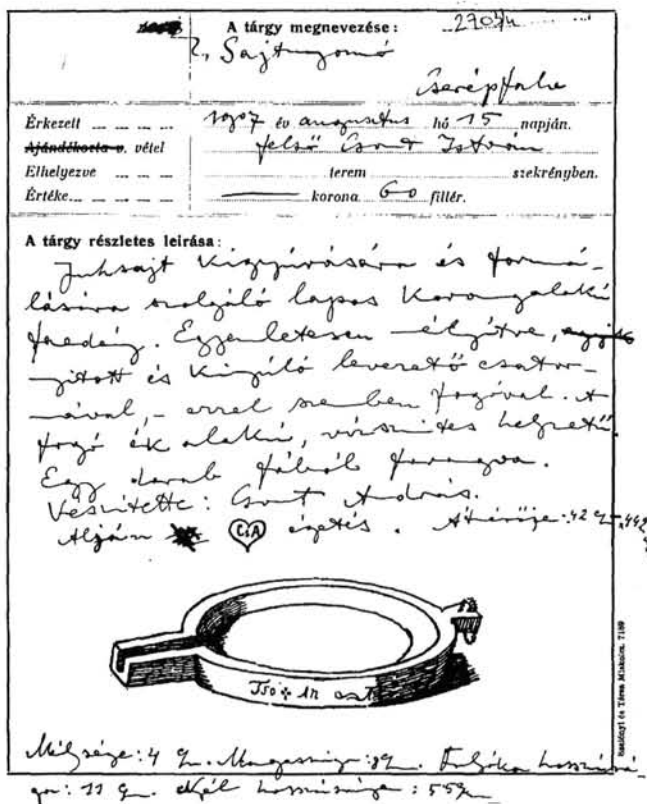 A tárgy megnevezése: 2705/4
2, Sajtnyomó
Cserépfalu
Érkezett 1907 év augusztus hó 15 napján.
Ajándékozta v. vétel felső Csont István
Elhelyezve terem szekrényben.
Értéke korona 60 fillér.
A tárgy részletes leirása:
Juhsajt kigyúrására és formá-
lására szolgáló lapos korongalakú
faedény. Egyenletesen
nyitott és kinyúló levezető csator-
nával, – ezzel szemben fogóval. A
fogó ék alakú, vízszintes helyzetű.
Egy darab fából faragva.
Készítette: Csont András.
Alján CsA égetés. Átérője: 42
Tso An
Mélysége: 4 Magassága: Folyóka hosszúsá-
ga: 11 hosszúsága: 55
7189